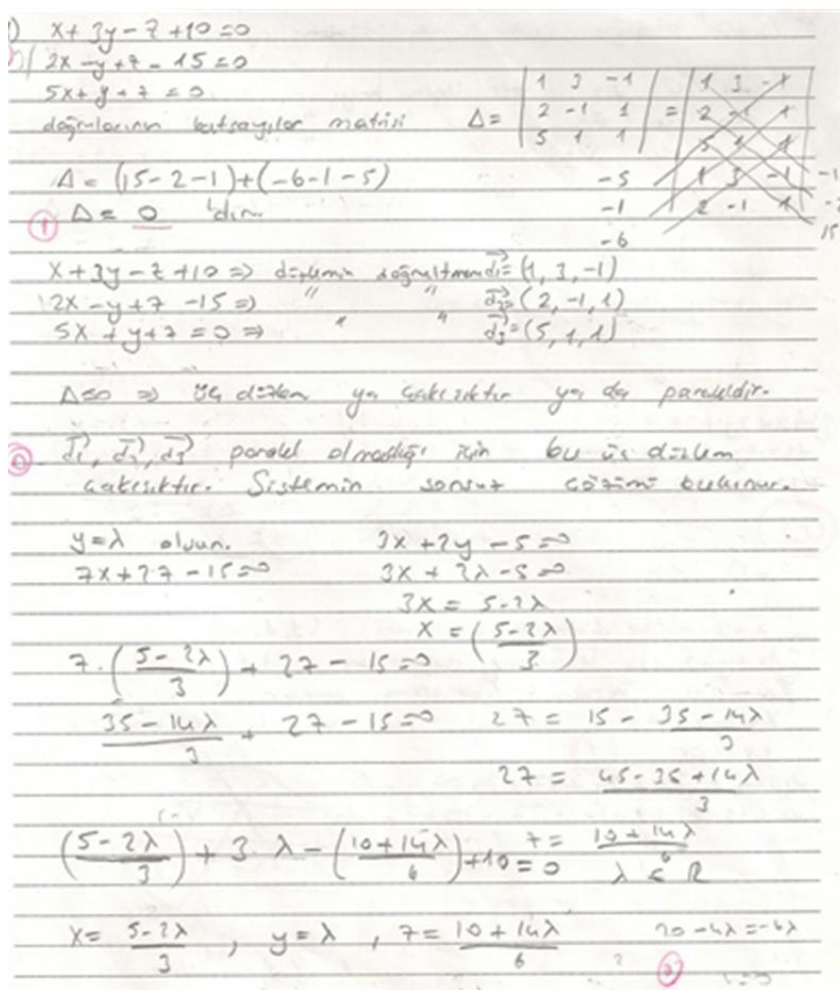 x + 3y - z + 10 = 0
2x - y + z - 15 = 0
5x + y + z = 0
doğrularının katsayılar matrisi Δ = | 1 3 -1 | = | 1 3 -1 |
| 2 -1 1 | | 2 -1 1 |
| 5 1 1 | | 5 1 1 |
Δ = (15 - 2 - 1) + (-6 - 1 - 5) -5 1 3 -1 -1
① Δ = 0 'dır. -1 2 -1 1 -2
-6 15
x + 3y - z + 10 => düzlemin doğrultmanı d₁ = (1, 3, -1)
2x - y + z - 15 => " " d₂ = (2, -1, 1)
5x + y + z = 0 => " " d₃ = (5, 1, 1)
Δ = 0 => üç düzlem ya çakışıktır ya da paraleldir.
d₁, d₂, d₃ paralel olmadığı için bu üç düzlem
çakışıktır. Sistemin sonsuz çözümü bulunur.
y = λ olsun. 3x + 2y - 5 = 0
7x + 2z - 15 = 0 3x + 2λ - 5 = 0
3x = 5 - 2λ
x = (5 - 2λ / 3)
7 . (5 - 2λ / 3) + 2z - 15 = 0
35 - 14λ / 3 + 2z - 15 = 0 2z = 15 - 35 - 14λ / 3
2z = 45 - 35 + 14λ / 3
(5 - 2λ / 3) + 3 . λ - (10 + 14λ / 6) + 10 = 0 z = 10 + 14λ / 6
λ ∈ R
x = 5 - 2λ / 3 , y = λ , z = 10 + 14λ / 6 20 - 4λ = -4λ
?